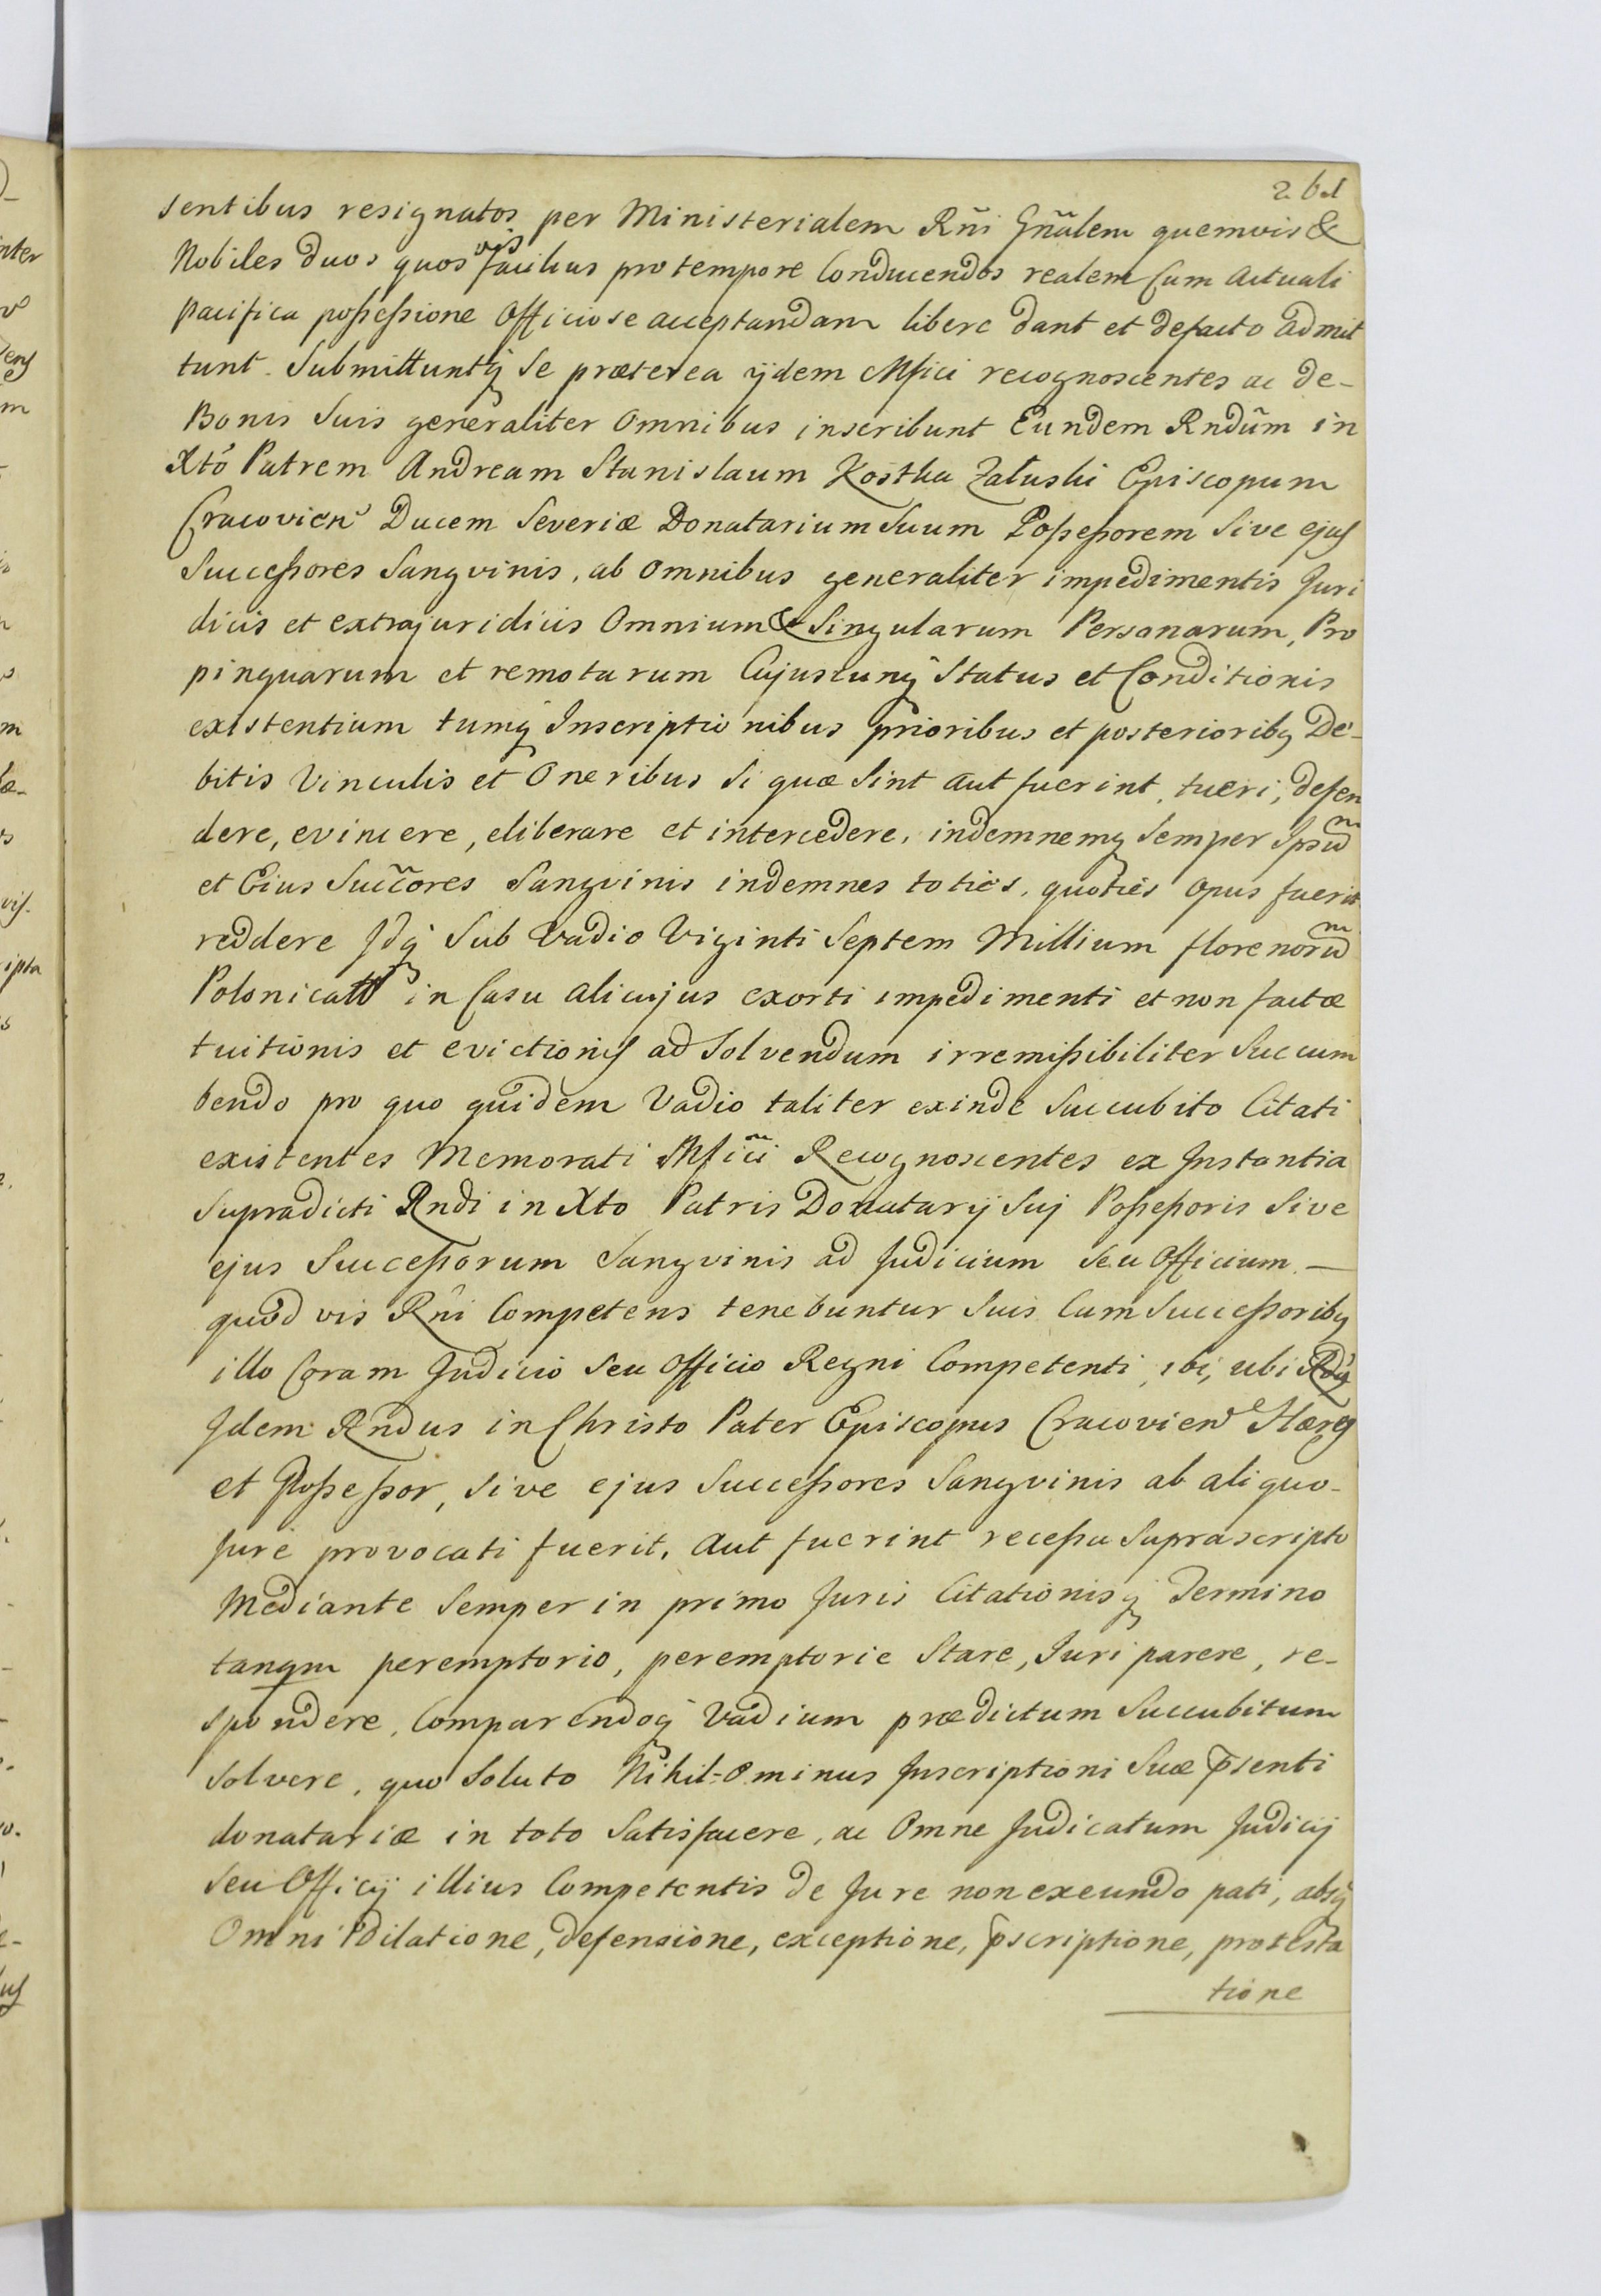 sentibus resignatos per Ministerialem Rñi Gñalem quemvis &
Nobiles duos quos vis facilius pro tempore Conducendos realem Cum actuali
pacifica poßeßione Officiose acceptandam libere dant et defacto admit
tunt. Submittuntq̃ Se præterea ijdem Mfici recognoscentes ac de-
Bonis Suis generaliter Omnibus inscribunt Eundem Rndũm in
Xtõ Patrem Andream Stanislaum Kostka Załuski Episcopum
Cracovien Ducem Severiæ Donatarium Suum Poßeßorem Sive ejus
Succeßores Sangvinis, ab Omnibus generaliter impedimentis Juri
dicis et extrajuridicis Omnium & Singularum Personarum, Pro
pinquarum et remotarum Cujuscunq̃ Status et Conditionis
existentium tumq̃ Inscriptionibus prioribus et posterioribq De-
bitis Vinculis et Oneribus Si quæ Sint aut fuerint, tueri, defen
dere, evincere, eliberare et intercedere, indemnemq̃ Semper Ipsũ
et Eius Succ̃ores Sangvinis indemnes toties, quoties opus fuerit
reddere Idq̃ Sub Vadio Viginti Septem Millium florenorũ
Polonicall in Casu alicujus exorti impedimenti et non factæ
tuitionis et evictionis ad Solvendum irremißibiliter Succum
bendo pro quo quidem Vadio taliter exinde Succubito Citati
existentes Memorati Mfic̃i Recognoscentes ex Instantia
Supradicti Rndi in Xto Patris Donatarij Suj Poßeßoris Sive
ejus Succeßorum Sangvinis ad Judicium Seu Officium. —
quod vis Rñi Competens tenebuntur Suis Cum Succeßoribq
illo Coram Judicio Seu Officio Regni Competenti, ibi, ubi
Idem Rndus in Christo Pater Episcopus Cracovien Hæres
et Poßeßor, Sive ejus Succeßores Sangvinis ab aliquo-
Jure provocati fuerit, aut fuerint receßu Suprascripto
Mediante Semper in primo Juris Citationisq̃ Termino
tanqm peremptorio, peremptorie Stare, Juri parere, re-
spondere, Comparendoq̃ Vadium prædictum Succubitum
Solvere, quo Soluto Nihil=Ominus Inscriptioni Suæ p̃senti
donatariæ in toto Satisfacere, ac Omne Judicatum Judicij
Seu Officij illius Competentis de Jure non exeundo pati, absq̃
Omni Dilatione, defensione, exceptione, p̃scriptione, protesta
tione